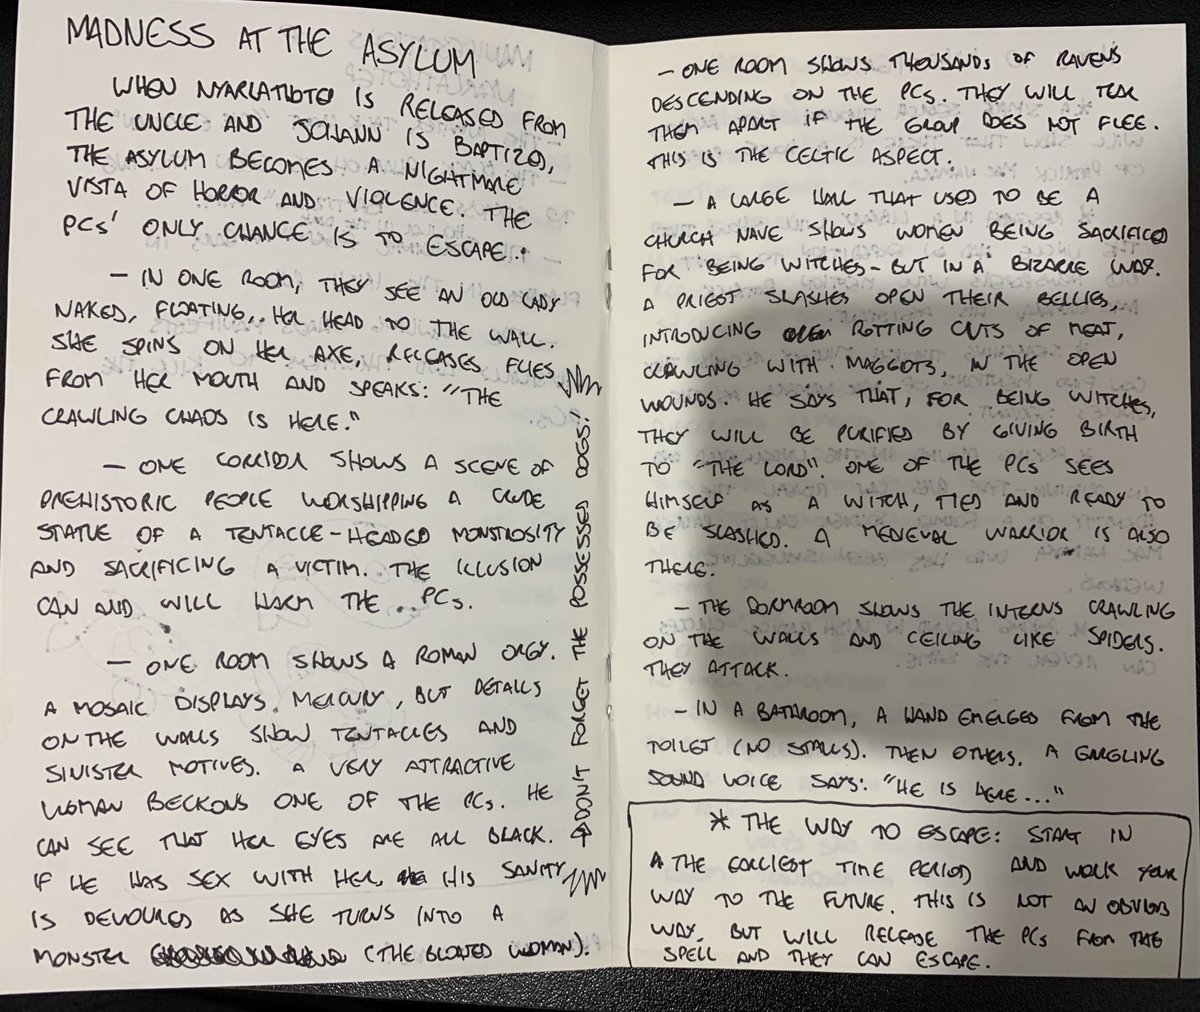 MADNESS AT THE ASYLUM
WHEN NYARLATHOTEP IS RELEASED FROM
THE UNCLE AND JOHANN IS BAPTIZED,
THE ASYLUM BECOMES A NIGHTMARE
VISTA OF HORROR AND VIOLENCE. THE
PCS' ONLY CHANCE IS TO ESCAPE.
- IN ONE ROOM, THEY SEE AN OLD LADY
NAKED, FLOATING, HER HEAD TO THE WALL.
SHE SPINS ON HER AXE, RELEASES FLIES
FROM HER MOUTH AND SPEAKS: "THE
CRAWLING CHAOS IS HERE."
- ONE CORRIDOR SHOWS A SCENE OF
PREHISTORIC PEOPLE WORSHIPPING A CRUDE
STATUE OF A TENTACLE-HEADED MONSTROSITY
AND SACRIFICING A VICTIM. THE ILLUSION
CAN AND WILL HARM THE PCS.
- ONE ROOM SHOWS A ROMAN ORGY.
A MOSAIC DISPLAYS MERCURY, BUT DETAILS
ON THE WALLS SHOW TENTACLES AND
SINISTER MOTIVES. A VERY ATTRACTIVE
WOMAN BECKONS ONE OF THE PCS. HE
CAN SEE THAT HER EYES ARE ALL BLACK.
IF HE HAS SEX WITH HER, HIS SANITY
IS DEVOURED AS SHE TURNS INTO A
MONSTER (THE BLOATED WOMAN).
→ DON'T FORGET THE POSSESSED DOGS!
- ONE ROOM SHOWS THOUSANDS OF RAVENS
DESCENDING ON THE PCS. THEY WILL TEAR
THEM APART IF THE GROUP DOES NOT FLEE.
THIS IS THE CELTIC ASPECT.
- A LARGE HALL THAT USED TO BE A
CHURCH NAVE SHOWS WOMEN BEING SACRIFICED
FOR BEING WITCHES - BUT IN A BIZARRE WAY.
A PRIEST SLASHES OPEN THEIR BELLIES,
INTRODUCING ROTTING CUTS OF MEAT,
CRAWLING WITH MAGGOTS, IN THE OPEN
WOUNDS. HE SAYS THAT, FOR BEING WITCHES,
THEY WILL BE PURIFIED BY GIVING BIRTH
TO "THE LORD". ONE OF THE PCS SEES
HIMSELF AS A WITCH, TIED AND READY TO
BE SLASHED. A MEDIEVAL WARRIOR IS ALSO
THERE.
- THE DORMROOM SHOWS THE INTERNS CRAWLING
ON THE WALLS AND CEILING LIKE SPIDERS.
THEY ATTACK.
- IN A BATHROOM, A HAND EMERGES FROM THE
TOILET (NO STALLS). THEN OTHERS. A GARGLING
VOICE SAYS: "HE IS HERE..."
* THE WAY TO ESCAPE: START IN
THE EARLIEST TIME PERIOD AND WORK YOUR
WAY TO THE FUTURE. THIS IS NOT AN OBVIOUS
WAY, BUT WILL RELEASE THE PCS FROM THE
SPELL AND THEY CAN ESCAPE.